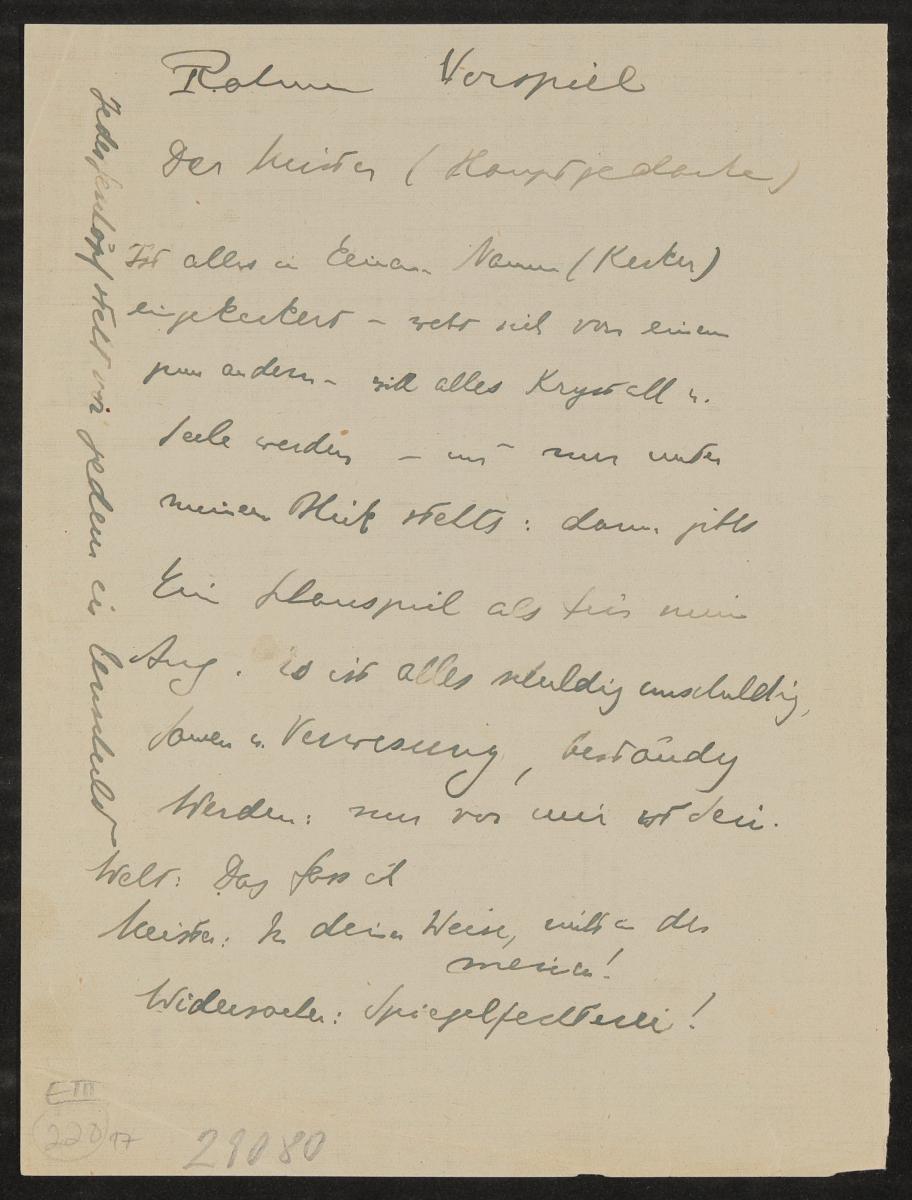 Rahmen Vorspiel
Der Meister (Hauptgedanke)
Ist alles in Einem Namen (Kerker)
eingekerkert – webt sich von einem
zum andern – will alles Krystall u.
Seele werden – und nur unter
meinem Blick stehts: dann gibts
Ein Schauspiel als für mein
Aug. so ist alles schuldig unschuldig,
Samen u. Verwesung, beständig
Werden: nur vor mir ist Sein.
Welt: Das fass ich
Meister: In deiner Weise, nicht in der
meinen!
Widersacher: Spiegelfechterei!
Jedes Geschöpf steht vor jedem in Schuld
E III
220 17
29080